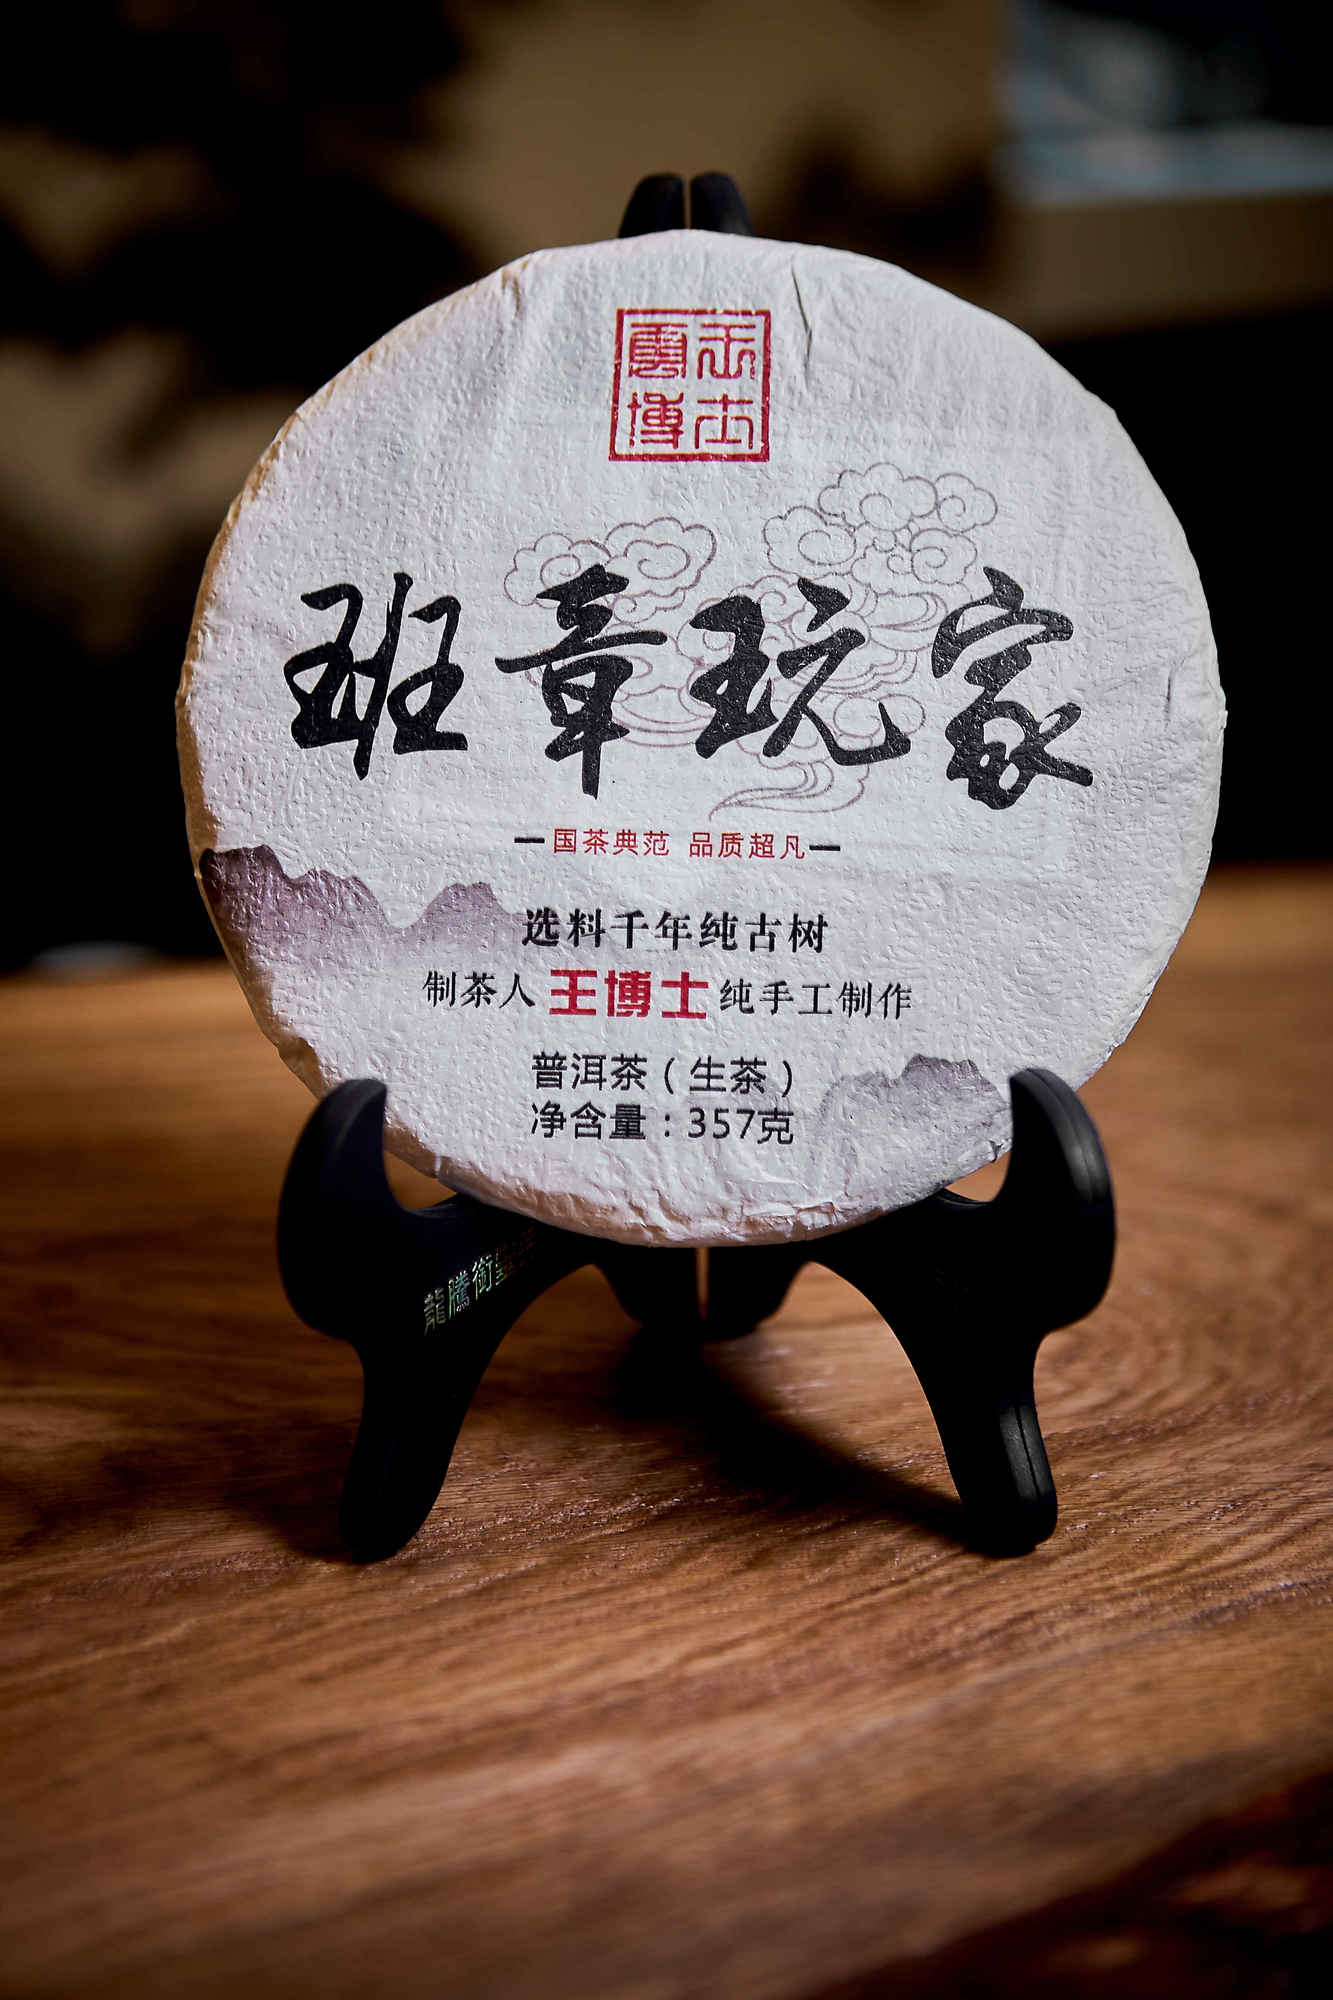 雲王
博士
班章玩家
国茶典范 品质超凡
选料千年纯古树
制茶人 王博士 纯手工制作
普洱茶（生茶）
净含量：357克
龍騰衛